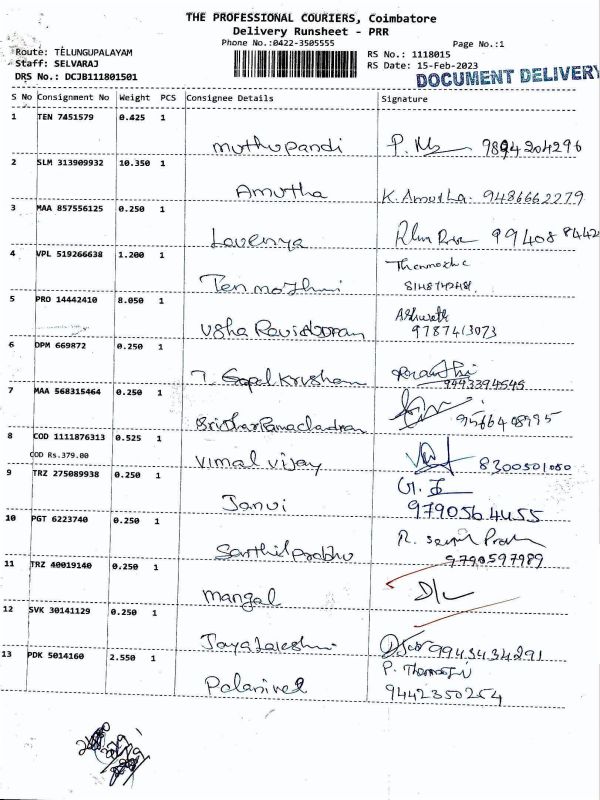 THE PROFESSIONAL COURIERS, Coimbatore
Delivery Runsheet - PRR
Phone No.:0422-3505555
Page No.:1
Route: TELUNGUPALAYAM
RS No.: 1118015
Staff: SELVARAJ
RS Date: 15-Feb-2023
DRS No.: DCJB111801501
DOCUMENT DELIVERY
S No Consignment No Weight PCS Consignee Details Signature
1 TEN 7451579 0.425 1
muthupandi 9894204296
2 SLM 313909932 10.350 1
Amutha K. Amutha. 9486662279
3 MAA 857556125 0.250 1
Lavenya 99408 8442
4 VPL 519266638 1.200 1
5 PRO 14442410 8.050 1
Usha 9787413073
6 DPM 669872 0.250 1
T. Gopal Krishnan 9443394545
7 MAA 568315464 0.250 1
9566408995
8 COD 1111876313 0.525 1
COD Rs.379.00
Vimal Vijay 8300501080
9 TRZ 275089938 0.250 1
Janvi 9790564455
10 PGT 6223740 0.250 1
9790597989
11 TRZ 40019140 0.250 1
mangal D/L
12 SVK 30141129 0.250 1
9943434291
13 PDK 5014160 2.550 1
Palanivel 9442350254